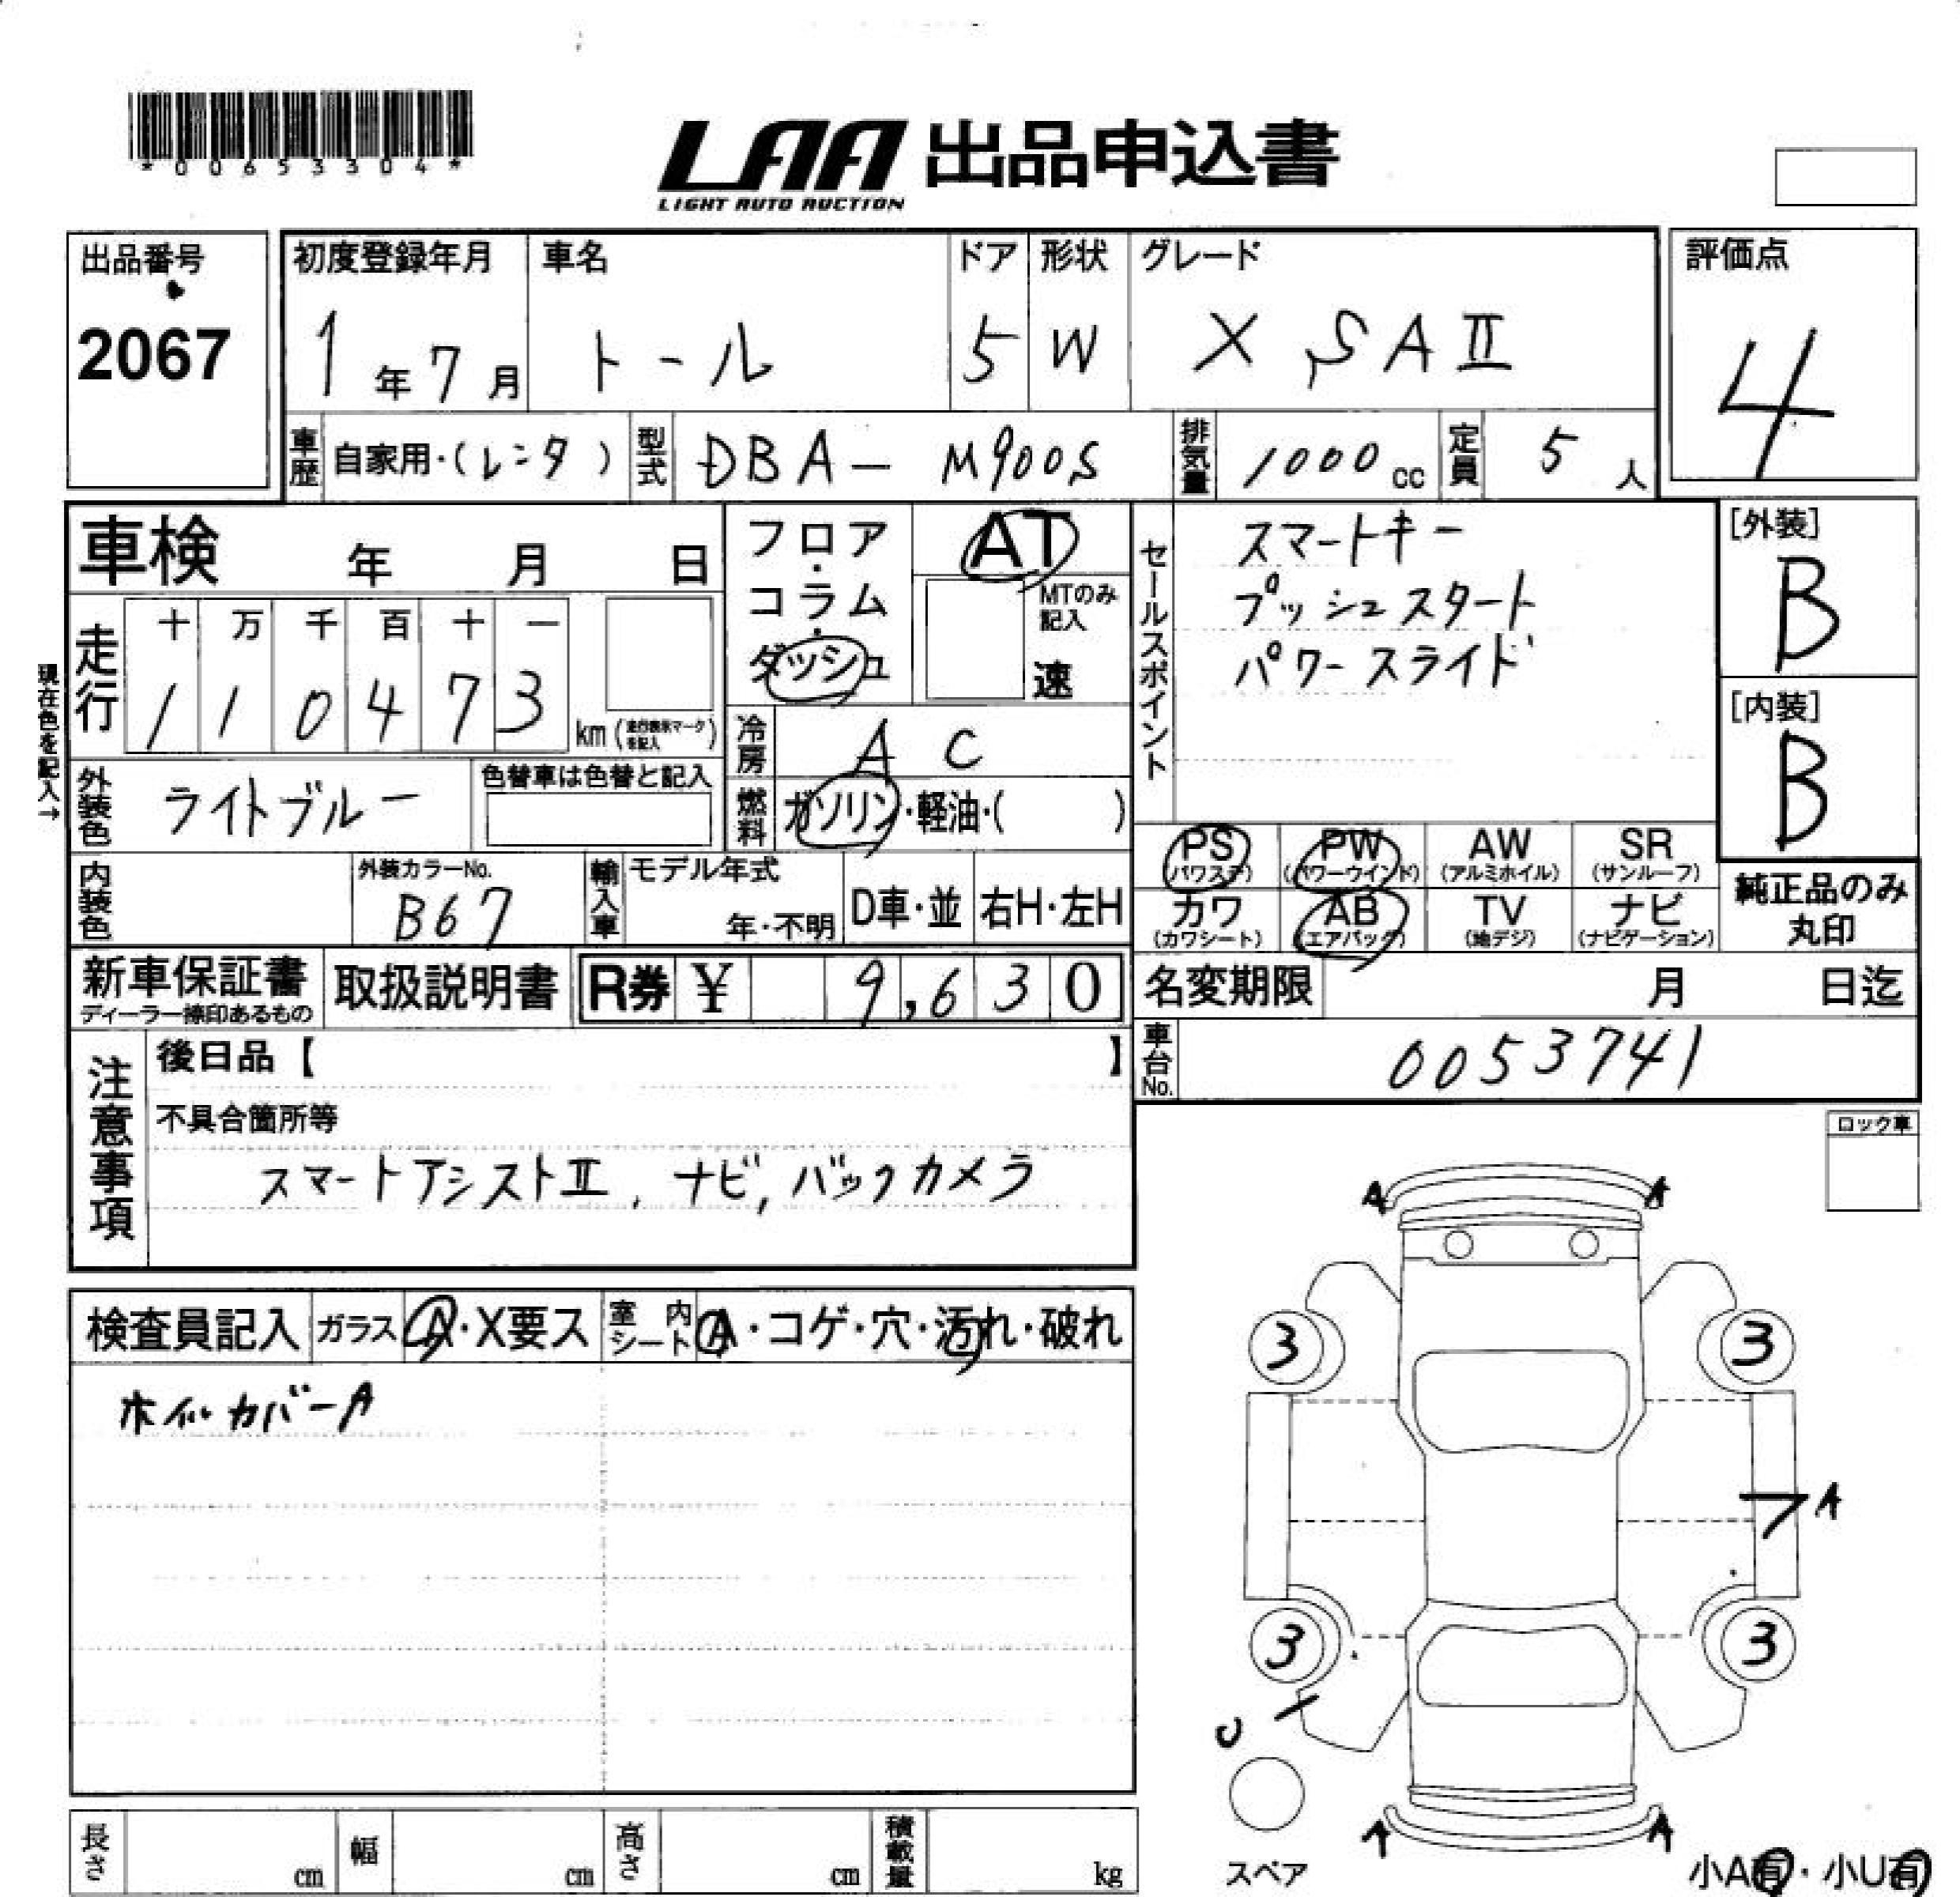 *00653304*
LAA 出品申込書
LIGHT AUTO AUCTION
出品番号
2067
初度登録年月
1年7月
車名
トール
ドア
5
形状
W
グレード
X SAⅡ
評価点
4
車歴
自家用・(レンタ)
型式
DBA-M900S
排気量
1000cc
定員
5人
車検 年 月 日
走行
十 万 千 百 十 一
1 1 0 4 7 3
km (走行換米マークを記入)
現在色を記入→
フロア・コラム・ダッシュ
AT
MTのみ記入
速
冷房
AC
燃料
ガソリン・軽油・( )
外装色
ライトブルー
色替車は色替と記入
内装色
外装カラーNo.
B67
輸入車
モデル年式
年・不明
D車・並
右H・左H
セールスポイント
スマートキー
プッシュスタート
パワースライド
[外装]
B
[内装]
B
PS
(パワステ)
PW
(パワーウインド)
AW
(アルミホイル)
SR
(サンルーフ)
カワ
(カワシート)
AB
(エアバッグ)
TV
(地デジ)
ナビ
(ナビゲーション)
純正品のみ
丸印
新車保証書
ディーラー捺印あるもの
取扱説明書
R券 ¥ 9,630
名変期限 月 日迄
車台No.
0053741
注意事項
後日品【 】
不具合箇所等
スマートアシストⅡ, ナビ, バックカメラ
ロック車
検査員記入
ガラス
A・X要ス
室内シート
A・コゲ・穴・汚れ・破れ
ホイルカバーA
A A
3 3
A
3 3
U
スペア
A A
小A有・小U有
長さ cm
幅 cm
高さ cm
積載量 kg